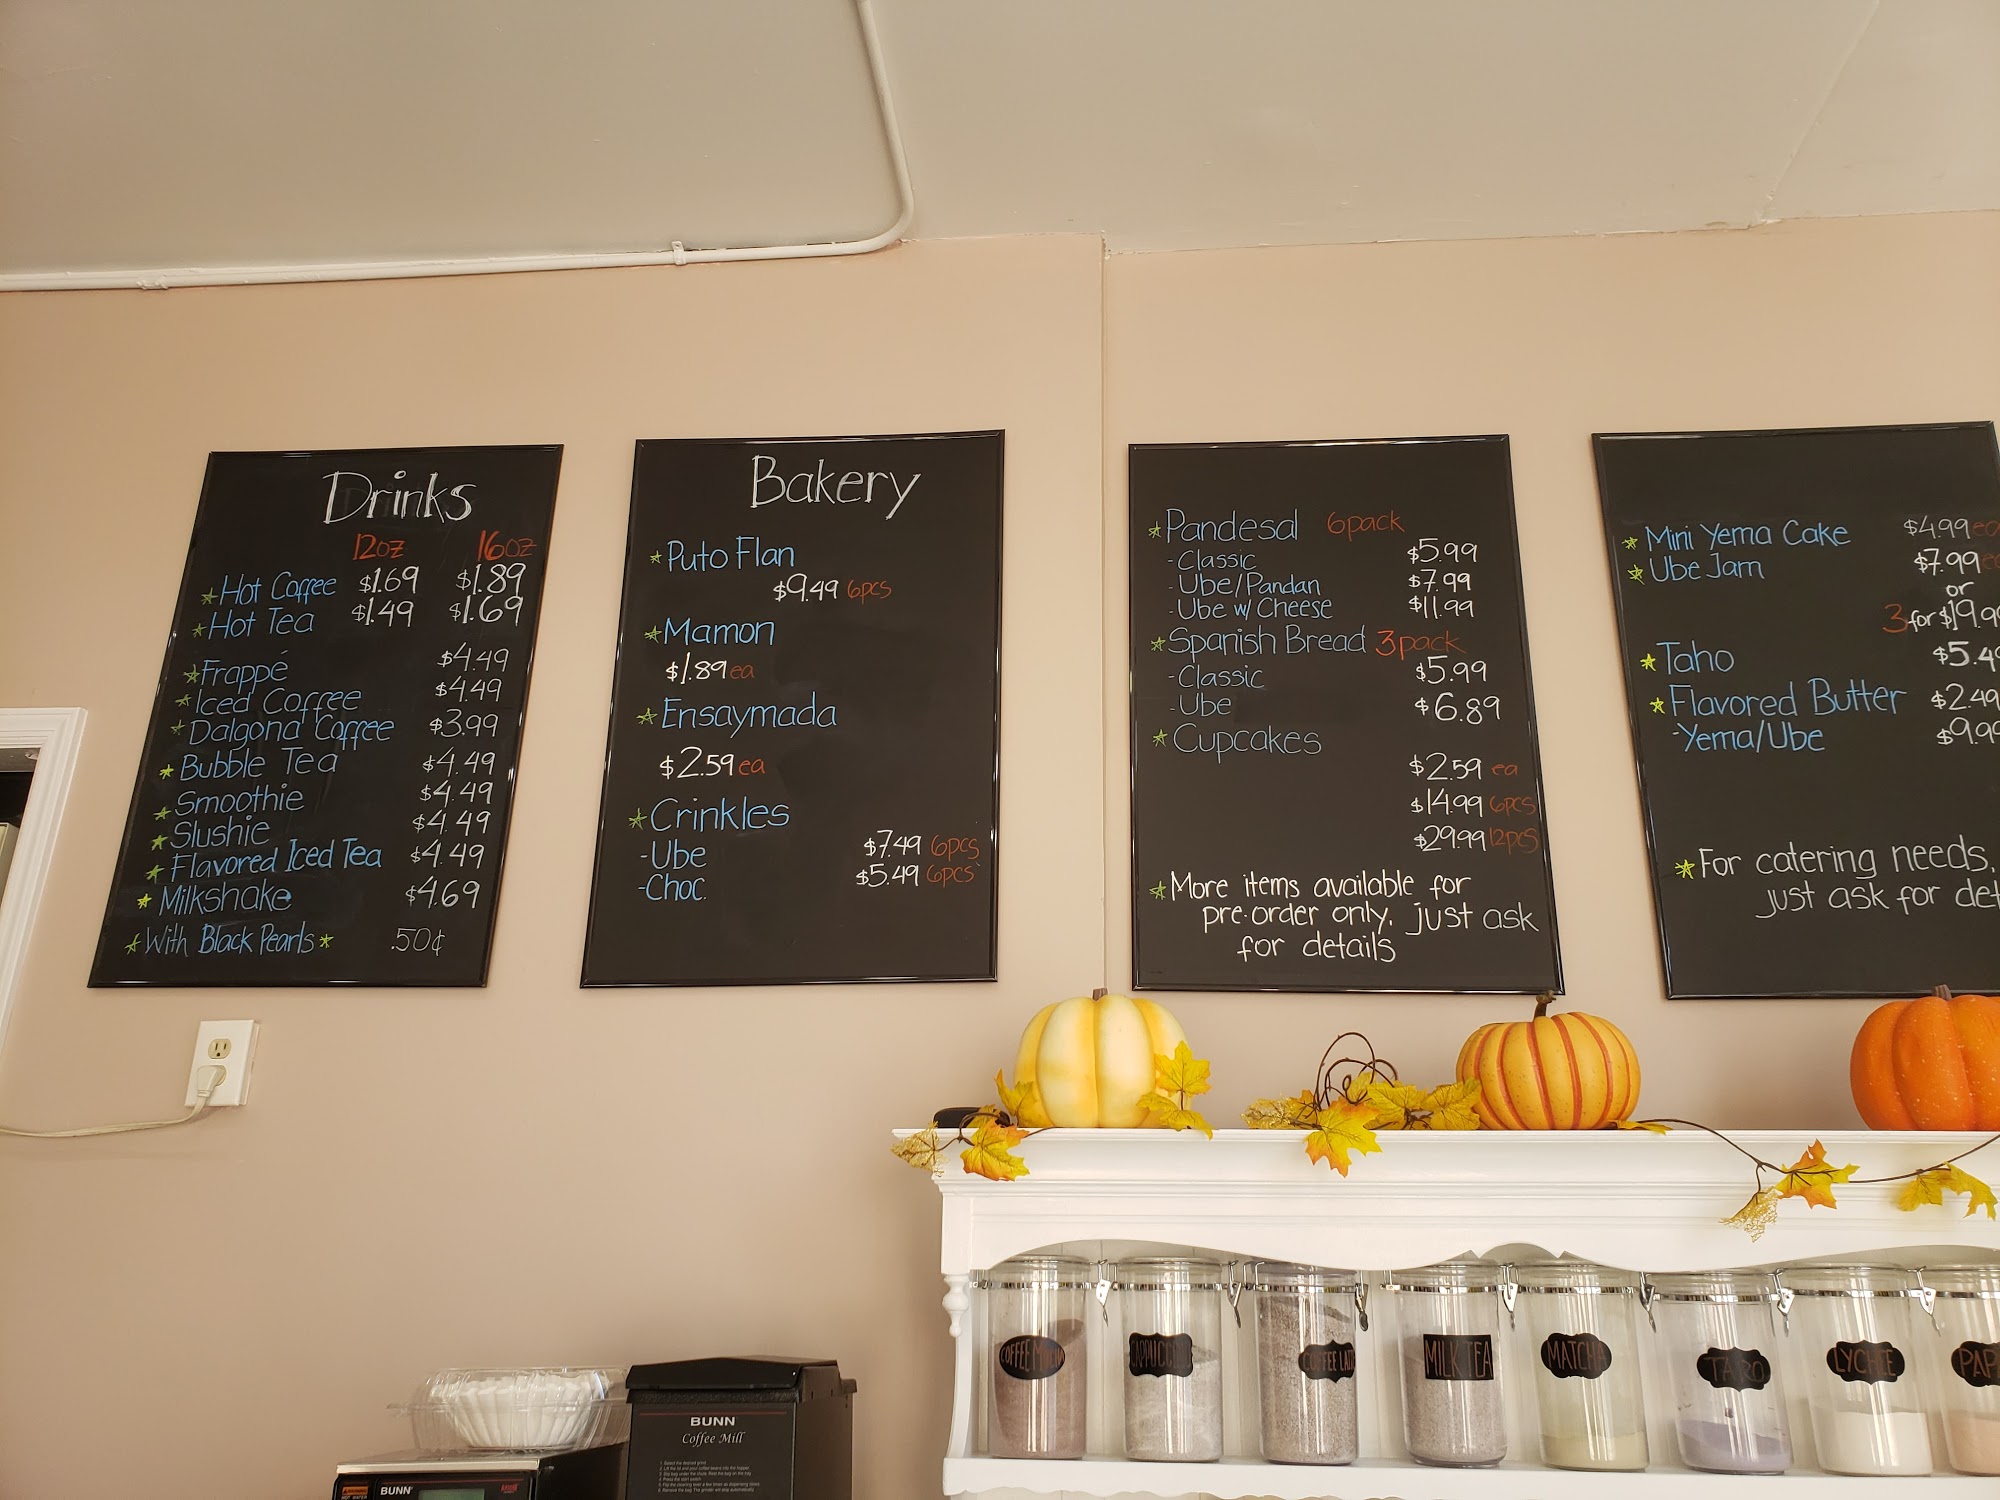 Drinks
12oz 16oz
Hot Coffee $1.69 $1.89
Hot Tea $1.49 $1.69
Frappé $4.49
Iced Coffee $4.49
Dalgona Coffee $3.99
Bubble Tea $4.49
Smoothie $4.49
Slushie $4.49
Flavored Iced Tea $4.49
Milkshake $4.69
With Black Pearls .50¢
Bakery
Puto Flan
$9.49 6pcs
Mamon
$1.89 ea
Ensaymada
$2.59 ea
Crinkles
-Ube $7.49 6pcs
-Choc. $5.49 6pcs
Pandesal 6pack
-Classic $5.99
-Ube/Pandan $7.99
-Ube w/ Cheese $11.99
Spanish Bread 3pack
-Classic $5.99
-Ube $6.89
Cupcakes
$2.59 ea
$14.99 6pcs
$29.99 12pcs
More items available for
pre-order only, just ask
for details
Mini Yema Cake $4.99 ea
Ube Jam $7.99
or
3 for $19.9
Taho $5.4
Flavored Butter $2.49
-Yema/Ube $9.9
For catering needs,
just ask for det
COFFEE MOCHA
CAPPUCCINO
COFFEE LATTE
MILK TEA
MATCHA
TARO
LYCHEE
PAPA
BUNN
Coffee Mill
BUNN